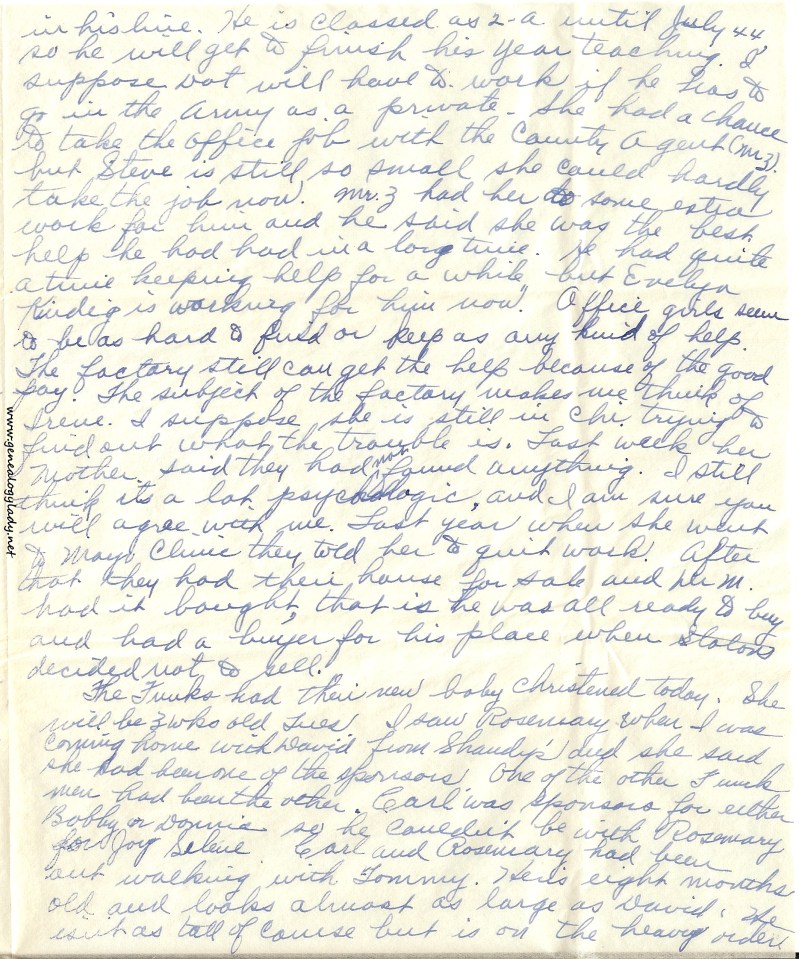 in his line. He is classed as 2-a until July 44
so he will get to finish his year teaching. I
suppose Dot will have to work if he has to
go in the Army as a private. She had a chance
to take the office job with the County Agent (Mr Z).
but Steve is still so small she could hardly
take the job now. Mr. Z had her do some extra
work for him and he said she was the best
help he had had in a long time. He had quite
a time keeping help for a while but Evelyn
Kindig is working for him now. Office girls seem
to be as hard to find or keep as any kind of help.
The factory still can get the help because of the good
pay. The subject of the factory makes me think of
Irene. I suppose she is still in Chi. trying to
find out what the trouble is. Last week her
Mother said they had not found anything. I still
think its a lot psychologic, and I am sure you
will agree with me. Last year when she went
to Mayo Clinic they told her to quit work. After
that they had their house for sale and Dr M.
had it bought, that is he was all ready to buy
and had a buyer for his place when Slatons
decided not to sell.
The Funks had their new baby christened today. She
will be 3 wks old Tues. I saw Rosemary when I was
coming home with David from Shandy's and she said
she had been one of the sponsors. One of the other Funk
men had been the other. Carl was sponsors for either
Bobby or Donnie so he couldn't be with Rosemary
for Joy Selene. Carl and Rosemary had been
out walking with Tommy. He is eight months
old and looks almost as large as David. He
isn't as tall of course but is on the heavy order.
www.genealogylady.net